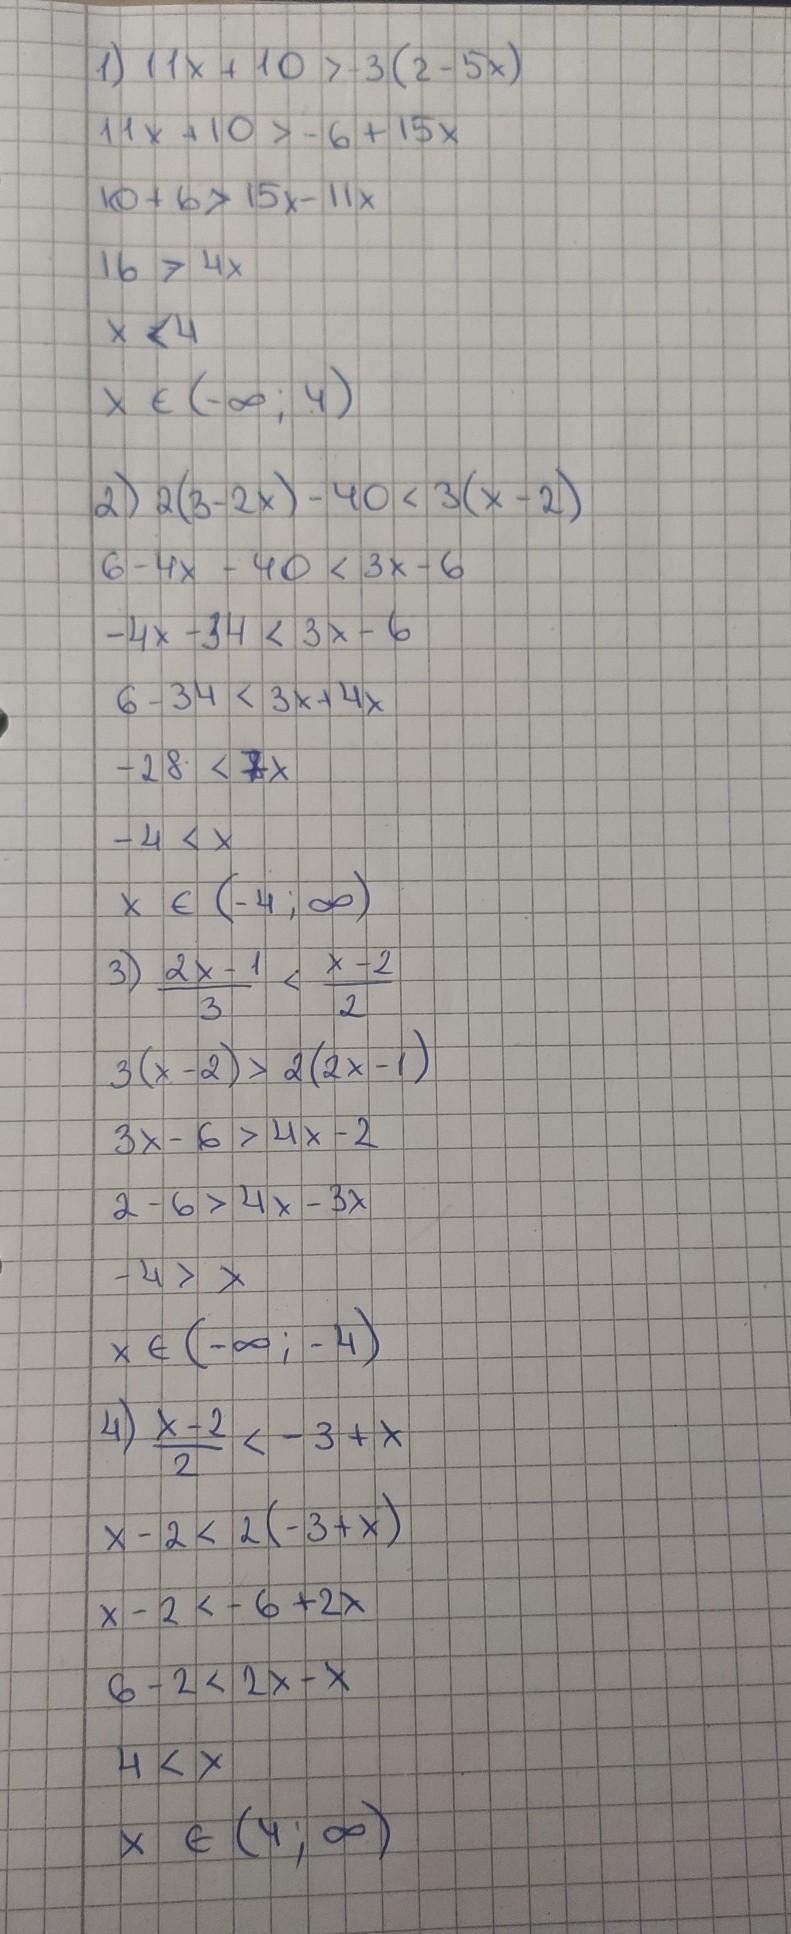 1) 11x + 10 > -3(2 - 5x)
11x + 10 > -6 + 15x
10 + 6 > 15x - 11x
16 > 4x
x < 4
x ∈ (-∞; 4)
2) 2(3 - 2x) - 40 < 3(x - 2)
6 - 4x - 40 < 3x - 6
-4x - 34 < 3x - 6
6 - 34 < 3x + 4x
-28 < 7x
-4 < x
x ∈ (-4; ∞)
3) \frac{2x - 1}{3} < \frac{x - 2}{2}
3(x - 2) > 2(2x - 1)
3x - 6 > 4x - 2
2 - 6 > 4x - 3x
-4 > x
x ∈ (-∞; -4)
4) \frac{x - 2}{2} < -3 + x
x - 2 < 2(-3 + x)
x - 2 < -6 + 2x
6 - 2 < 2x - x
4 < x
x ∈ (4; ∞)